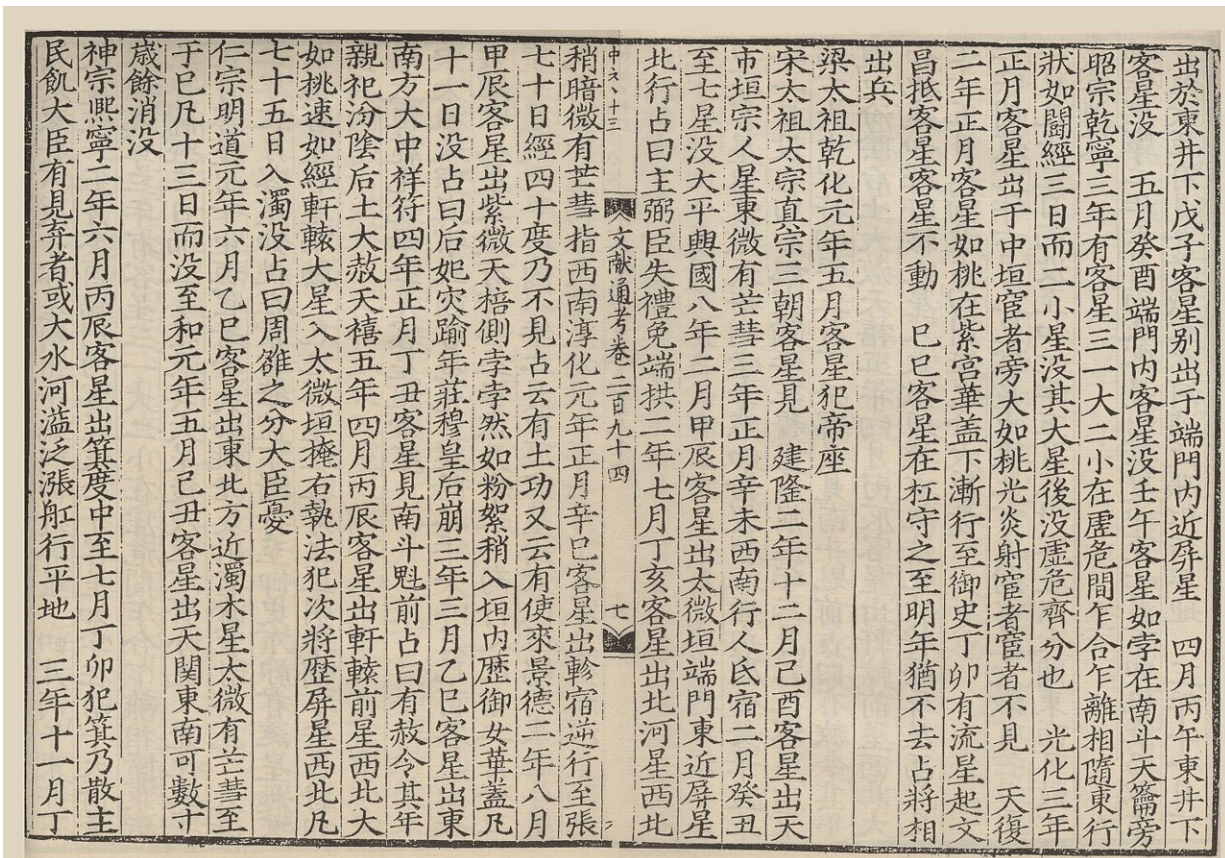 出於東井下戊子客星别出于端門内近屏星　四月丙午東井下
客星没　五月癸酉端門内客星没壬午客星如孛在南斗天籥旁
昭宗乾寧三年有客星三一大二小在虚危間乍合乍離相隨東行
狀如鬭經三日而二小星没其大星後没虚危齊分也　光化三年
正月客星出于中垣宦者旁大如桃光炎射宦者宦者不見　天復
二年正月客星如桃在紫宫華盖下漸行至御史丁卯有流星起文
昌抵客星客星不動　巳巳客星在杠守之至明年猶不去占將相
出兵
梁太祖乾化元年五月客星犯帝座
宋太祖太宗真宗三朝客星見　建隆二年十二月己酉客星出天
市垣宗人星東微有芒彗三年正月辛未西南行入氐宿二月癸丑
至七星没大平興國八年二月甲辰客星出太微垣端門東近屏星
北行占曰主弼臣失禮免端拱二年七月丁亥客星出北河星西北
文献通考卷二百九十四　七
稍暗微有芒彗指西南淳化元年正月辛巳客星出軫宿逆行至張
七十日經四十度乃不見占云有土功又云有使來景德二年八月
甲辰客星出紫微天棓側孛孛然如粉絮稍入垣内歴御女華盖凡
十一日没占曰后妃灾踰年莊穆皇后崩三年三月乙巳客星出東
南方大中祥符四年正月丁丑客星見南斗魁前占曰有赦令其年
親祀汾陰后土大赦天禧五年四月丙辰客星出軒轅前星西北大
如桃速如經軒轅大星入太微垣掩右執法犯次將歴屏星西北凡
七十五日入濁没占曰周雒之分大臣憂
仁宗明道元年六月乙巳客星出東北方近濁木星太微有芒彗至
于巳凡十三日而没至和元年五月己丑客星出天関東南可數寸
歳餘消没
神宗熈寧二年六月丙辰客星出箕度中至七月丁卯犯箕乃散主
民飢大臣有見弃者或大水河溢泛漲舡行平地　三年十一月丁